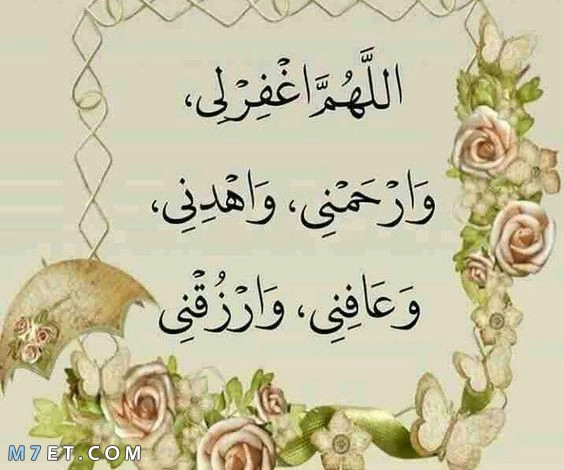 اللَّهُمَّ اغْفِرْ لِي،
وَارْحَمْنِي، وَاهْدِنِي،
وَعَافِنِي، وَارْزُقْنِي
M7ET.COM